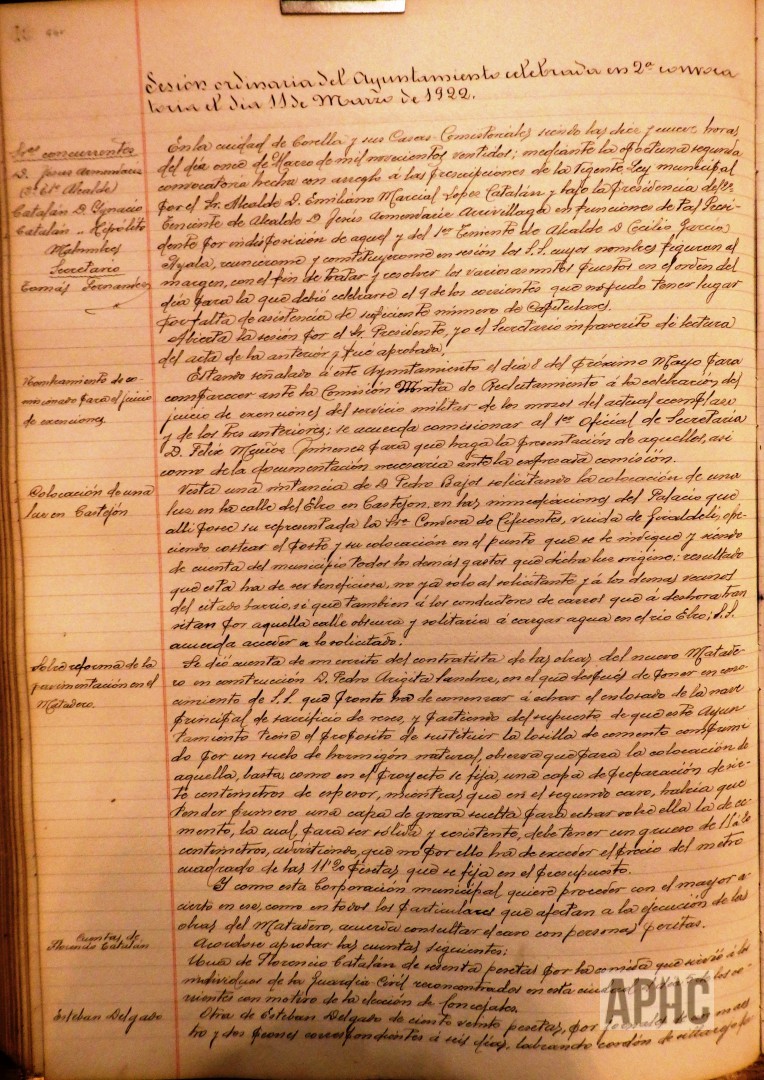 Sesión ordinaria del Ayuntamiento celebrada en 2ª convoca
toria el día 11 de Marzo de 1922.
Sres concurrentes
D. Jesús Armendariz
(2º Tte Alcalde)
Catalán D. Ignacio
Catalán " Hipólito
Malumbres
Secretario
Tomás Fernandez
En la ciudad de Corella y sus Casas Consistoriales siendo las diez y nueve horas
del día once de Marzo de mil novecientos veintidos; mediante la oportuna segunda
convocatoria hecha con arreglo á las prescripciones de la vigente Ley municipal
por el Sr. Alcalde D. Emiliano Marcial Lopez Catalán y bajo la presidencia del 2º
Teniente de Alcalde D. Jesús Armendariz Arrivillaga en funciones de tal Presi-
dente por indisposición de aquel y del 1er Teniente de Alcalde D. Cecilio Garcia
Ayala, reunieronse y constituyeronse en sesión los S.S. cuyos nombres figuran al
margen, con el fin de tratar y resolver los varios asuntos puestos en el orden del
día para la que debió celebrarse el 9 de los corrientes que no pudo tener lugar
por falta de asistencia de suficiente número de Capitulares.
Abierta la sesión por el Sr. Presidente, yo el Secretario infrascrito dí lectura
del acta de la anterior y fué aprobada.
Nombramiento de co-
misionado para el juicio
de exenciones
Estando señalado á este Ayuntamiento el día 8 del próximo Mayo para
comparecer ante la Comisión Mixta de Reclutamiento á la celebración del
juicio de exenciones del servicio militar de los mozos del actual reemplazo
y de los tres anteriores; se acuerda comisionar al 1er Oficial de Secretaria
D. Felix Muñoz Jimenez para que haga la presentación de aquellos, asi
como de la documentación necesaria ante la expresada comisión.
Colocación de una
luz en Castejón
Vista una instancia de D. Pedro Bajos solicitando la colocación de una
luz en la calle del Ebro en Castejón en las inmediaciones del Palacio que
alli posee su representada la Sra Condesa de Cifuentes, viuda de Giraldeli, ofre-
ciendo costear el poste y su colocación en el punto que se le indique y siendo
de cuenta del municipio todos los demás gastos que dicha luz origine; resultado
que esta ha de ser beneficiosa, no ya solo al solicitante y á los demas vecinos
del citado barrio, si que tambien á los conductores de carros que á deshora tran
sitan por aquella calle obscura y solitaria á cargar agua en el rio Ebro; S.S.
acuerda acceder a lo solicitado.
Sobre reforma de la
pavimentación en el
Matadero.
Se dió cuenta de un escrito del contratista de las obras del nuevo Matade-
ro en construcción D. Pedro Argita Landrez, en el que después de poner en cono-
cimiento de S.S. que pronto ha de comenzar á echar el enlosado de la nave
principal de sacrificio de reses, y partiendo del supuesto de que este Ayun-
tamiento tiene el propósito de sustituir la losilla de cemento comprimi-
do por un suelo de hormigón natural, observa que para la colocación de
aquella, basta como en el proyecto se fija, una capa de preparación de sie-
te centimetros de espesor, mientras que en el segundo caso, habria que
tender primero una capa de grava suelta para echar sobre ella la de ce-
mento, la cual, para ser sólida y resistente, debe tener un grueso de 11 á 20
centimetros, advirtiendo, que no por ello ha de exceder el precio del metro
cuadrado de las 11'20 pesetas que se fija en el presupuesto.
Y como esta Corporación municipal quiere proceder con el mayor a-
cierto en eso, como en todos los particulares que afectan a la ejecución de las
obras del Matadero, acuerda consultar el caso con personas peritas.
Cuentas de
Florencio Catalán
Acordose aprobar las cuentas siguientes:
Una de Florencio Catalán de sesenta pesetas por la comida que sirvió á los
individuos de la Guardia Civil reconcentrados en esta ciudad
rrientes con motivo de la elección de Concejales.
Esteban Delgado
Otra de Esteban Delgado de ciento veinte pesetas, por jornales de un maes
tro y dos peones correspondientes á seis días, labrando cordón de sillarejo pa
APHC